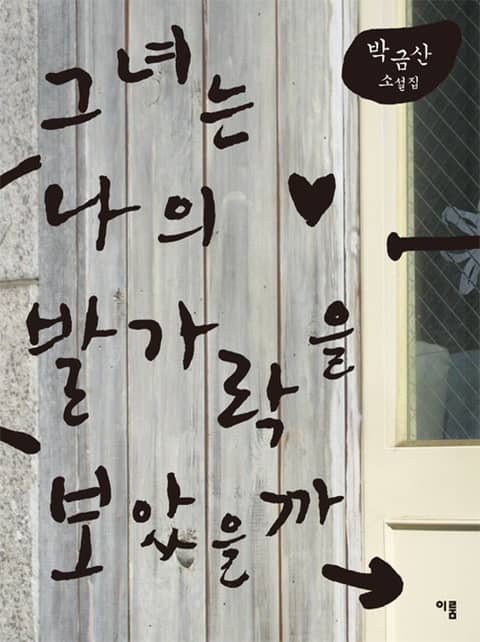 박금산
소설집
그녀는
나의
발가락을
보았을까
이룸